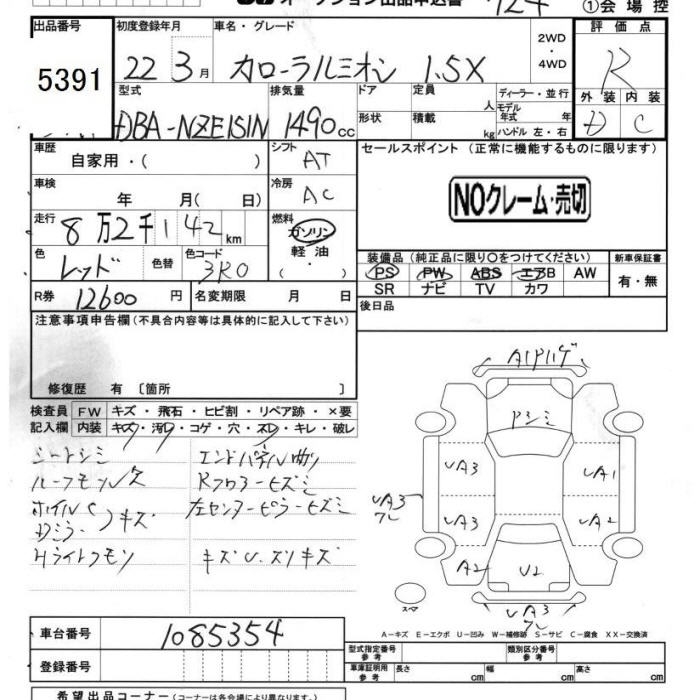 ①会場控
出品番号 初度登録年月 車名・グレード 評価点
5391 22 3月 カローラルミオン 1.5X 2WD・4WD R
型式 排気量 ドア 定員 人 ディーラー・並行 外装 内装
DBA-NZE151N 1490cc 形状 積載 kg モデル年式 年 ハンドル 左・右 D C
車歴 自家用・( ) シフト AT セールスポイント (正常に機能するものに限ります)
車検 年 月( 日) 冷房 AC NOクレーム・売切
走行 8万2千142km 燃料 ガソリン 軽油 ・( )
色 レッド 色替 色コード 3R0 装備品 (純正品に限り○をつけてください) 新車保証書
PS PW ABS エアB AW 有・無
SR ナビ TV カワ
R券 12600円 名変期限 月 日 後日品
注意事項申告欄(不具合内容等は具体的に記入して下さい)
修復歴 有 [箇所 ]
検査員 FW キズ・飛石・ヒビ割・リペア跡・×要
記入欄 内装 キズ・汚レ・コゲ・穴・スレ・キレ・破レ
シートシミ エンドパネル曲り
Rフロアーヒズミ
左センターピラーヒズミ
キズU.スリキズ
A1
UA3 UA1
UA3 UA2
UA3
A2 U2
UA3
スペア
A-キズ E-エクボ U-凹み W-補修跡 S-サビ C-腐食 XX-交換済
車台番号 1085354
登録番号
型式指定番号 参考 類別区分番号 参考
車庫証明用 参考 長さ cm 幅 cm 高さ cm
希望出品コーナー(コーナーは各会場により異なります)